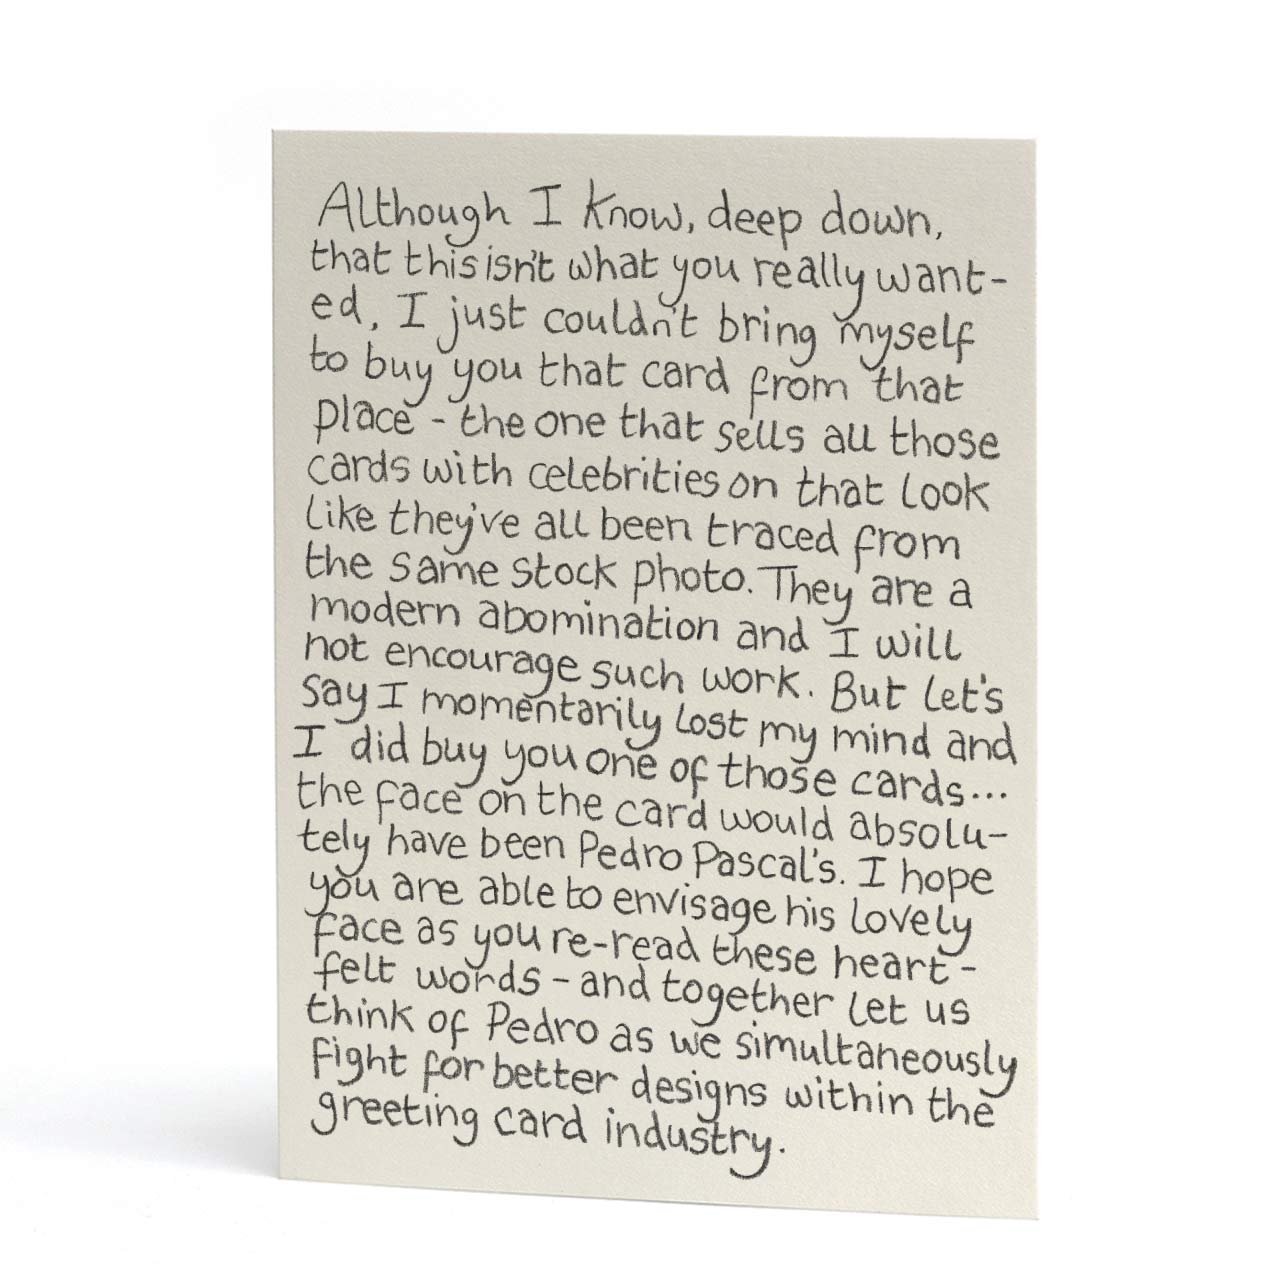 Although I know, deep down,
that this isn't what you really want-
ed, I just couldn't bring myself
to buy you that card from that
place - the one that sells all those
cards with celebrities on that look
like they've all been traced from
the same stock photo. They are a
modern abomination and I will
not encourage such work. But let's
say I momentarily lost my mind and
I did buy you one of those cards...
the face on the card would absolu-
tely have been Pedro Pascal's. I hope
you are able to envisage his lovely
face as you re-read these heart-
felt words - and together let us
think of Pedro as we simultaneously
fight for better designs within the
greeting card industry.